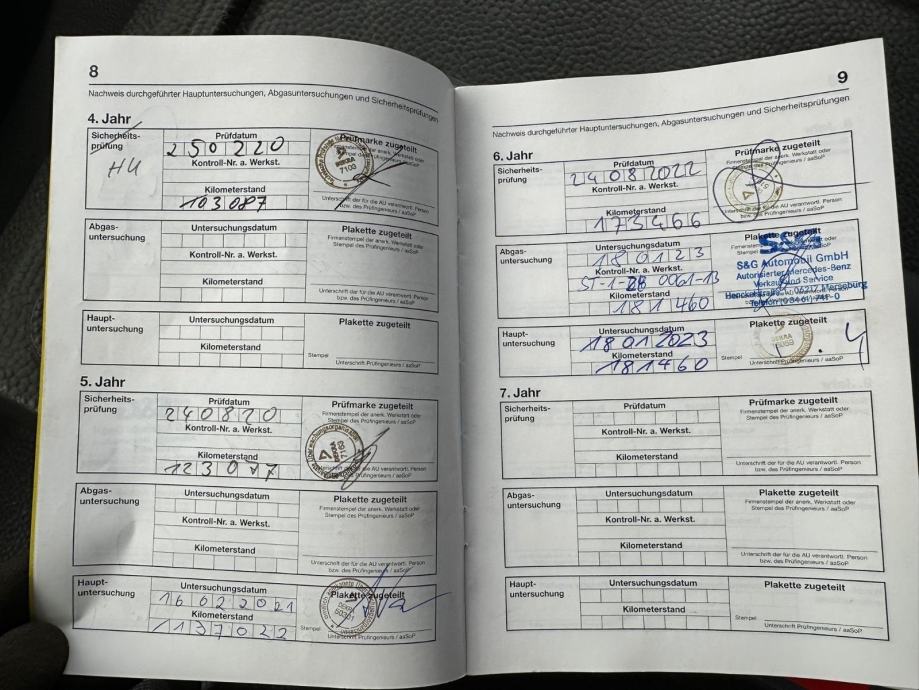 8
Nachweis durchgeführter Hauptuntersuchungen, Abgasuntersuchungen und Sicherheitsprüfungen
4. Jahr
Sicherheits-
prüfung
HU
Prüfdatum
250220
Kontroll-Nr. a. Werkst.
Kilometerstand
103087
Prüfmarke zugeteilt
DEKRA
Unterschrift der für die AU verantwortl. Person
bzw. des Prüfingenieurs / aaSoP
Abgas-
untersuchung
Untersuchungsdatum
Kontroll-Nr. a. Werkst.
Kilometerstand
Plakette zugeteilt
Firmenstempel der anerk. Werkstatt oder
Stempel des Prüfingenieurs / aaSoP
Unterschrift der für die AU verantwortl. Person
bzw. des Prüfingenieurs / aaSoP
Haupt-
untersuchung
Untersuchungsdatum
Kilometerstand
Plakette zugeteilt
Stempel
Unterschrift Prüfingenieurs / aaSoP
5. Jahr
Sicherheits-
prüfung
Prüfdatum
240820
Kontroll-Nr. a. Werkst.
Kilometerstand
Prüfmarke zugeteilt
Firmenstempel der anerk. Werkstatt oder
Stempel des Prüfingenieurs / aaSoP
Abgas-
untersuchung
Untersuchungsdatum
Kontroll-Nr. a. Werkst.
Kilometerstand
Plakette zugeteilt
Firmenstempel der anerk. Werkstatt oder
Stempel des Prüfingenieurs / aaSoP
Unterschrift der für die AU verantwortl. Person
bzw. des Prüfingenieurs / aaSoP
Haupt-
untersuchung
Untersuchungsdatum
16022021
Kilometerstand
137022
Plakette zugeteilt
DEKRA
Stempel
Unterschrift Prüfingenieurs / aaSoP
9
Nachweis durchgeführter Hauptuntersuchungen, Abgasuntersuchungen und Sicherheitsprüfungen
6. Jahr
Sicherheits-
prüfung
Prüfdatum
24082022
Kontroll-Nr. a. Werkst.
Kilometerstand
173466
Prüfmarke zugeteilt
Firmenstempel der anerk. Werkstatt oder
Stempel des Prüfingenieurs / aaSoP
Unterschrift der für die AU verantwortl. Person
bzw. des Prüfingenieurs / aaSoP
Abgas-
untersuchung
Untersuchungsdatum
180123
Kontroll-Nr. a. Werkst.
Kilometerstand
181460
Plakette zugeteilt
S&G
S&G Automobil GmbH
Autorisierter Mercedes-Benz
Verkauf und Service
06217 Merseburg
Haupt-
untersuchung
Untersuchungsdatum
18012023
Kilometerstand
181460
Plakette zugeteilt
DEKRA
Stempel
Unterschrift Prüfingenieurs / aaSoP
7. Jahr
Sicherheits-
prüfung
Prüfdatum
Kontroll-Nr. a. Werkst.
Kilometerstand
Prüfmarke zugeteilt
Firmenstempel der anerk. Werkstatt oder
Stempel des Prüfingenieurs / aaSoP
Unterschrift der für die AU verantwortl. Person
bzw. des Prüfingenieurs / aaSoP
Abgas-
untersuchung
Untersuchungsdatum
Kontroll-Nr. a. Werkst.
Kilometerstand
Plakette zugeteilt
Firmenstempel der anerk. Werkstatt oder
Stempel des Prüfingenieurs / aaSoP
Unterschrift der für die AU verantwortl. Person
bzw. des Prüfingenieurs / aaSoP
Haupt-
untersuchung
Untersuchungsdatum
Kilometerstand
Plakette zugeteilt
Stempel
Unterschrift Prüfingenieurs / aaSoP